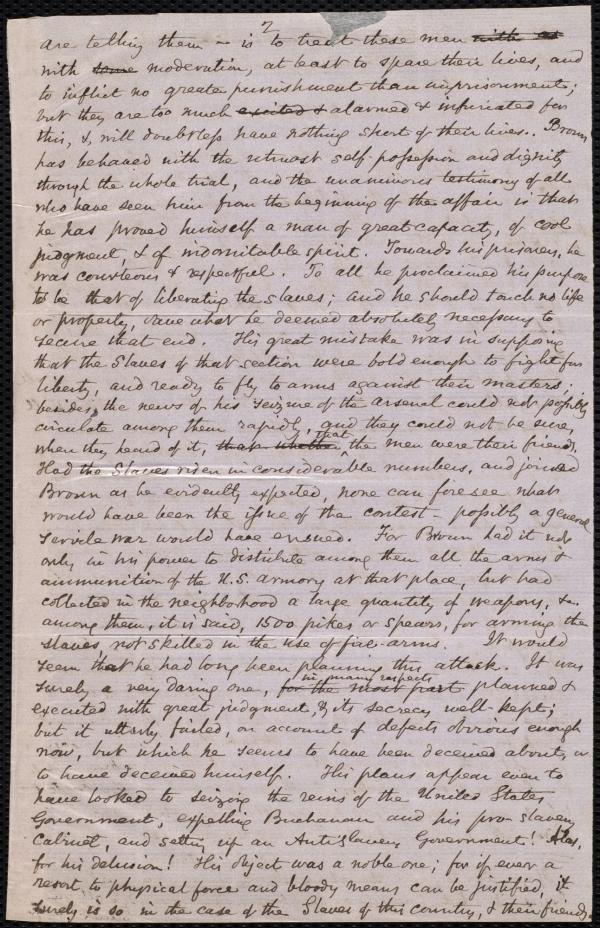 2
are telling them – is to treat these men with as
with some moderation, at least to spare their lives, and
to inflict no greater punishment than imprisonment;
but they are too much excited & alarmed & infuriated for
this, & will doubtless have nothing short of their lives. Brown
has behaved with the utmost self-possession and dignity
through the whole trial, and the unanimous testimony of all
who have seen him from the beginning of the affair is that
he has proved himself a man of great capacity, of cool
judgment, & of indomitable spirit. Towards his prisoners, he
was courteous & respectful. To all he proclaimed his purpose
to be that of liberating the slaves; and he should touch no life
or property, save what he deemed absolutely necessary to
secure that end. His great mistake was in supposing
that the Slaves of that section were bold enough to fight for
liberty, and ready to fly to arms against their masters;
besides, the news of his seizure of the arsenal could not possibly
circulate among them rapidly, and they could not be sure,
when they heard of it, that whether that the men were their friends.
Had the Slaves risen in considerable numbers, and joined
Brown as he evidently expected, none can foresee what
would have been the issue of the contest – possibly a general
servile war would have ensued. For Brown had it not
only in his power to distribute among them all the arms &
ammunition of the U.S. armory at that place, but had
collected in the neighborhood a large quantity of weapons, &c.
among them, it is said, 1500 pikes or spears, for arming the
slaves, not skilled in the use of fire-arms. It would
seem that he had long been planning this attack. It was
surely a very daring one, for the most part in many respects planned &
executed with great judgment, & its secrecy well kept;
but it utterly failed, on account of defects obvious enough
now, but which he seems to have been deceived about, or
to have deceived himself. His plans appear even to
have looked to seizing the reins of the United States
Government, expelling Buchanan and his pro-slavery
Cabinet, and setting up an AntiSlavery Government! Alas,
for his delusion! His object was a noble one; for if ever a
resort to physical force and bloody means can be justified, it
surely is so in the case of the Slaves of this country, & their friends.